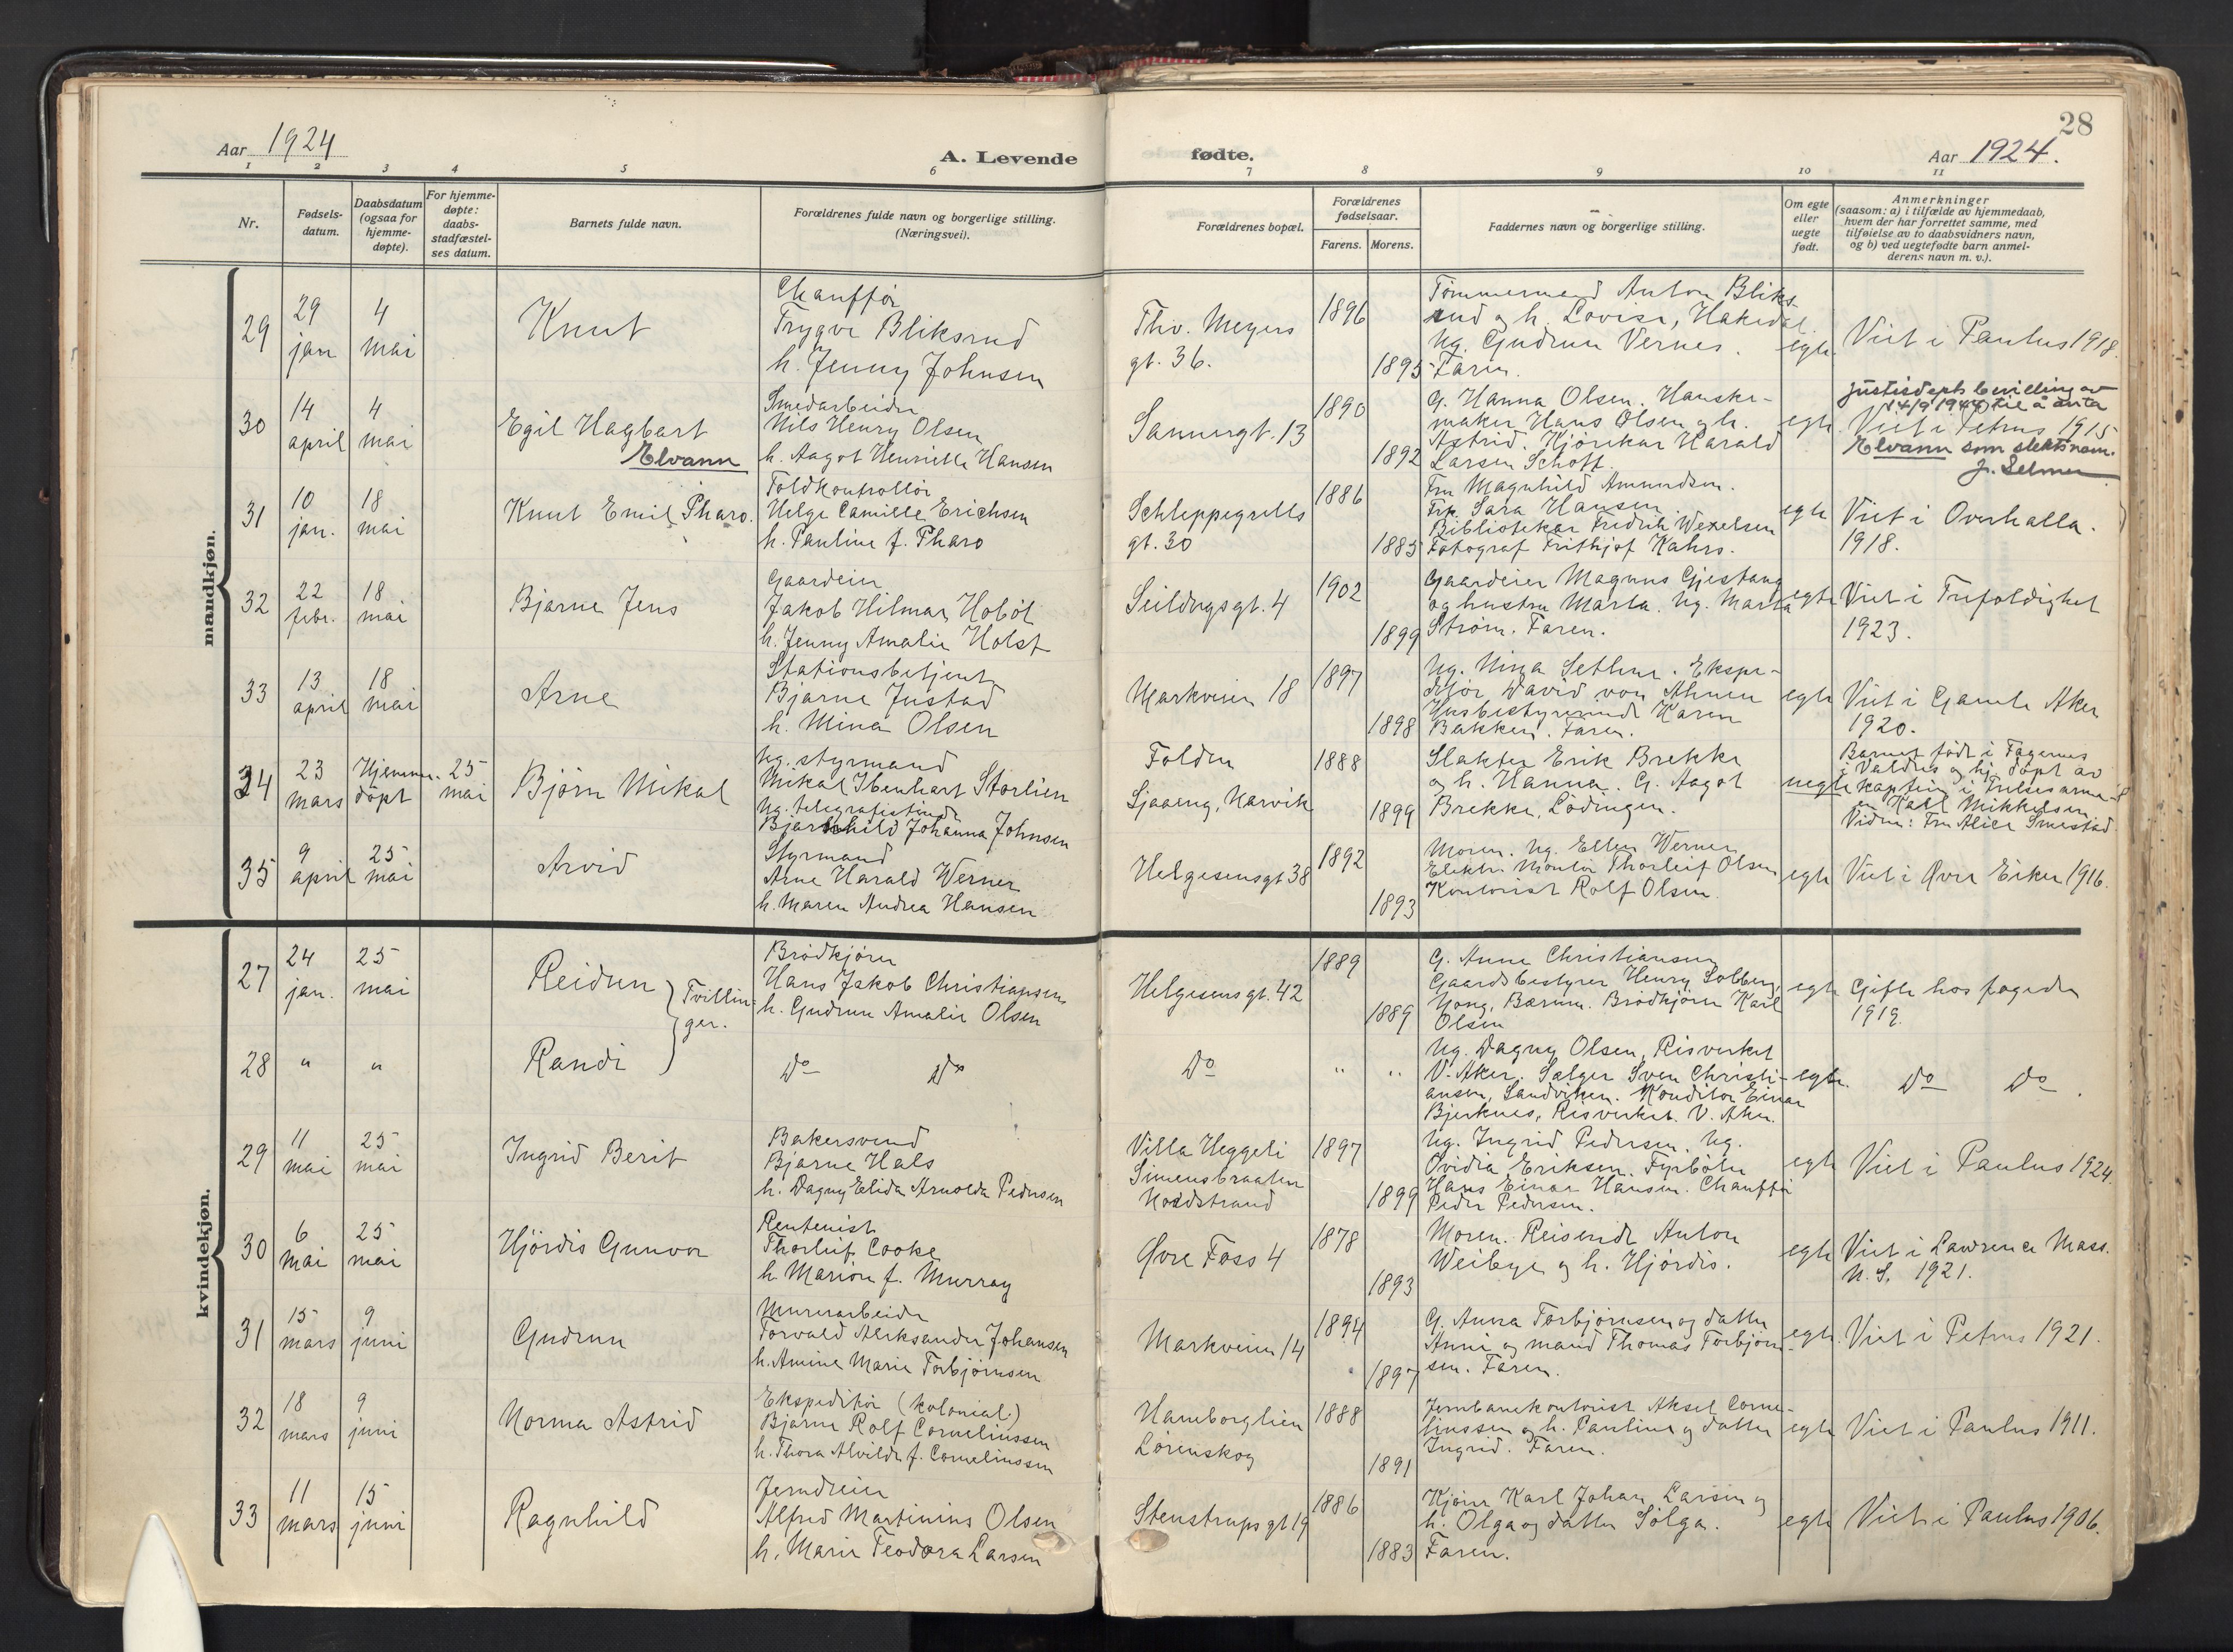 28
Aar 1924
A. Levende
fødte.
Aar 1924.
1 2 3 4 5 6 7 8 9 10 11
Nr.
Fødsels-
datum.
Daabsdatum
(ogsaa for
hjemme-
døpte).
For hjemme-
døpte:
daabs-
stadfæstel-
ses datum.
Barnets fulde navn.
Forældrenes fulde navn og borgerlige stilling.
(Næringsvei).
Forældrenes bopæl.
Forældrenes
fødselsaar.
Farens. Morens.
Faddernes navn og borgerlige stilling.
Om egte
eller
uegte
født.
Anmerkninger
(saasom: a) i tilfælde av hjemmedaab,
hvem der har forrettet samme, med
tilføielse av to daabsvidners navn,
og b) ved uegtefødte barn anmel-
derens navn m. v.).
mandkjøn.
29
29
jan
4
mai
Knut
Chauffør
Trygve Bliksrud
h. Jenny Johnsen
Thv. Meyers
gt. 36.
1896
1895
Tømmermand Anton Bliks-
rud og h. Lovise, Hakedal.
Ug. Gudrun Vernes.
Faren.
egte
Viet i Paulus 1918.
30
14
april
4
mai
Egil Hagbart
Elvann
Smedarbeider
Nils Henry Olsen
h. Aagot Henriette Hansen
Sannergt. 13
1890
1892
G. Hanna Olsen. Hanske-
maker Hans Olsen og h.
Astrid. Kjørekar Harald
Larsen Schøtt.
egte.
Justisdepts bevilling av
14/9 1944 til å anta
Viet i Petrus 1915
Elvann som slektsnavn.
J. Selmer
31
10
jan.
18
mai
Knut Emil Pharo.
Toldkontrollør
Helge Camille Erichsen
h. Pauline f. Pharo
Schleppegrells
gt. 30
1886
1885
Fru Magnhild Amundsen.
Frp. Sara Hansen.
Bibliotekar Fredrik Wexelsen
Fotograf Frithjof Kahrs.
egte
Viet i Overhalla.
1918.
32
22
febr.
18
mai
Bjarne Jens
Gaardeier
Jakob Hilmar Hobøl
h. Jenny Amalie Holst
Seildugsgt. 4
1902
1899
Gaardeier Magnus Gjestang
og hustru Marta. Ug. Marta
Strøm. Faren.
egte
Viet i Trefoldighet
1923.
33
13
april
18
mai
Arne
Stationsbetjent
Bjarne Justad
h. Mina Olsen
Markveien 18
1897
1898
Ug. Nina Sethne. Ekspe-
ditør David von Ahnen
Husbestyrerinde Karen
Bakken. Faren.
egte
Viet i Gamle Aker
1920.
34
23
mars
Hjemme-
døpt
25
mai
Bjørn Mikal
Ug. styrmand
Mikal Ibenhart Storlien
Ug. telegrafistinde
Bjarnhild Johanna Johnsen
Folden
Sjaaeng, Narvik
1888
1899
Slakter Erik Brekke
og h. Hanna. G. Aagot
Brekke, Lödingen.
uegte
Barnet født i Fagernes
i Valdres og hj. døpt av
kaptein i Frelsesarme-
en Karl Mikkelsen
Vidne: Fru Alice Smestad
35
9
april
25
mai
Arvid
Styrmand
Arne Harald Werner
h. Maren Andrea Hansen
Helgesensgt 38
1892
1893
Moren. Ug. Ellen Werner
Elektr. Montør Thorleif Olsen
Kontorist Rolf Olsen.
egte
Viet i Øvre Eiker 1916.
kvindekjøn.
27
24
jan.
25
mai
Reidun
Tvillin-
ger.
Brødkjører
Hans Jakob Christiansen
h. Gudrun Amalie Olsen
Helgesens gt. 42
1889
1889
G. Anne Christiansen
Gaardsbestyrer Henry Solberg,
Yong, Bærum. Brødkjører Karl
Olsen
egte
Gifte hos fogeden
1919.
28
"
"
Randi
Do Do
Do
" "
Ug. Dagny Olsen, Risverket
V. Aker. Sælger Sven Christi-
ansen, Sandviken. Konditor Einar
Bjerknes, Risverket. V. Aker.
egte.
Do Do.
29
11
mai
25
mai
Ingrid Berit
Bakersvend
Bjarne Hals
h. Dagny Elida Arnolda Pedersen
Villa Heggeli
Simensbraaten
Nordstrand
1897
1899
Ug. Ingrid Pedersen. Ug.
Ovidia Eriksen. Fyrbøter
Hans Einar Hansen. Chauffør
Peder Pedersen.
egte
Viet i Paulus 1924.
30
6
mai
25
mai
Hjördis Gunvor
Rentenist
Thorleif Cooke
h. Marion f. Murray
Øvre Foss 4
1878
1893
Moren. Reisende Anton
Weibye og h. Hjördis.
egte
Viet i Lawrence Mass.
U. S. 1921.
31
15
mars
9
juni
Gudrun
Murerarbeider
Torvald Aleksander Johansen
h. Amine Marie Torbjørnsen
Markveien 14
1894
1897
G. Anna Torbjørnsen og datter
Anni og mand Thomas Torbjørn-
sen. Faren.
egte.
Viet i Petrus 1921.
32
18
mars
9
juni
Norma Astrid
Ekspeditør (kolonial)
Bjarne Rolf Corneliussen
h. Thora Alvilde f. Corneliussen
Haneborglien
Lørenskog
1888
1891
Jernbanekontorist Aksel Corne-
liussen og h. Pauline og datter
Ingrid. Faren.
egte
Viet i Paulus 1911.
33
11
mars
15
juni
Ragnhild
Jerndreier
Alfred Martinius Olsen
h. Marie Teodora Larsen
Stenstrups gt 19
1886
1883
Kjører Karl Johan Larsen og
h. Olga og datter Solga.
Faren.
egte
Viet i Paulus 1906.